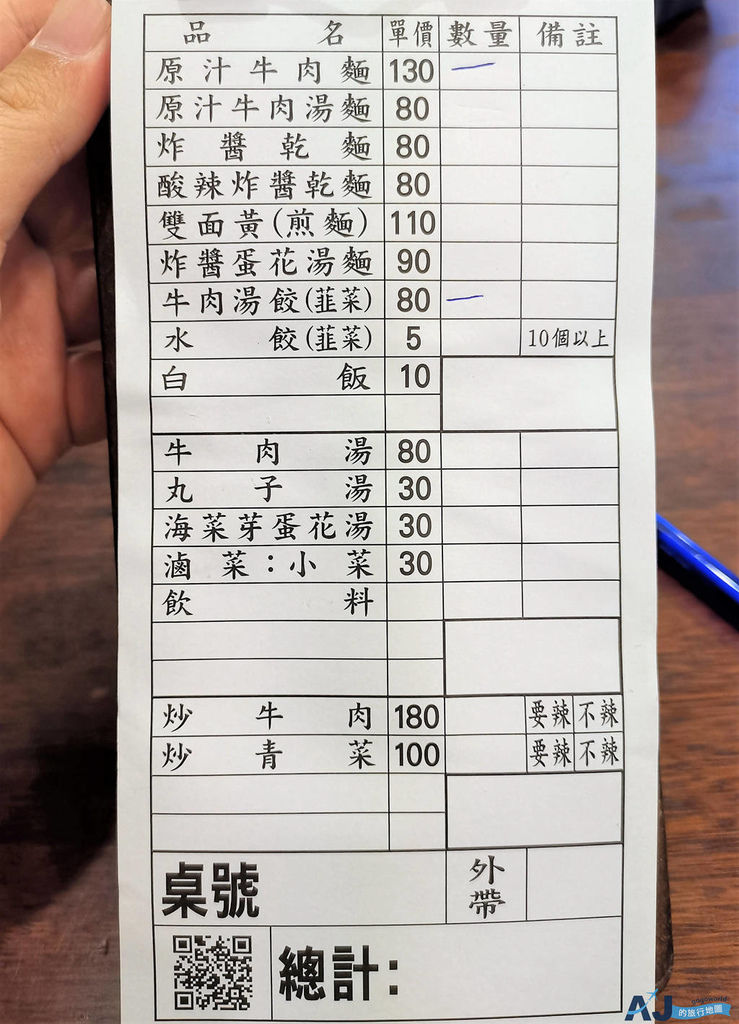 品名 單價 數量 備註
原汁牛肉麵 130 一
原汁牛肉湯麵 80
炸醬乾麵 80
酸辣炸醬乾麵 80
雙面黃(煎麵) 110
炸醬蛋花湯麵 90
牛肉湯餃(韮菜) 80 一
水餃(韮菜) 5 10個以上
白飯 10
牛肉湯 80
丸子湯 30
海菜芽蛋花湯 30
滷菜：小菜 30
飲料
炒牛肉 180 要辣 不辣
炒青菜 100 要辣 不辣
桌號 外帶
總計：
gogoworld
AJ的旅行地圖